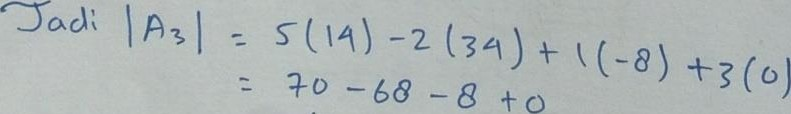 Jadi |A₃| = 5(14) - 2(34) + 1(-8) + 3(0)
= 70 - 68 - 8 + 0